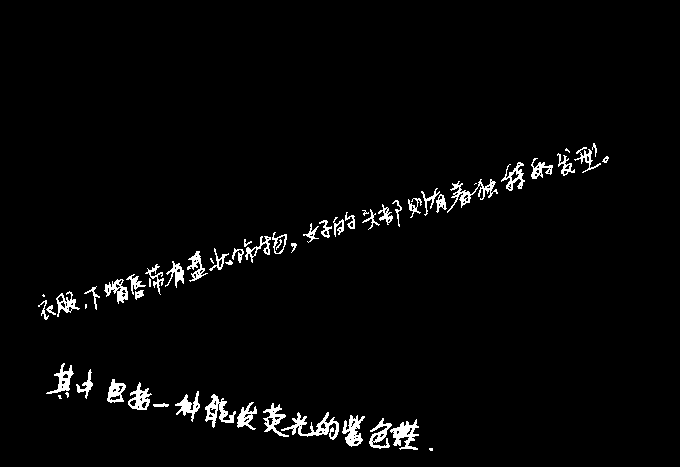 衣服,下嘴唇带有盘状饰物,女子的头部则有着独特的发型。
其中包括一种能发荧光的紫色蛙.